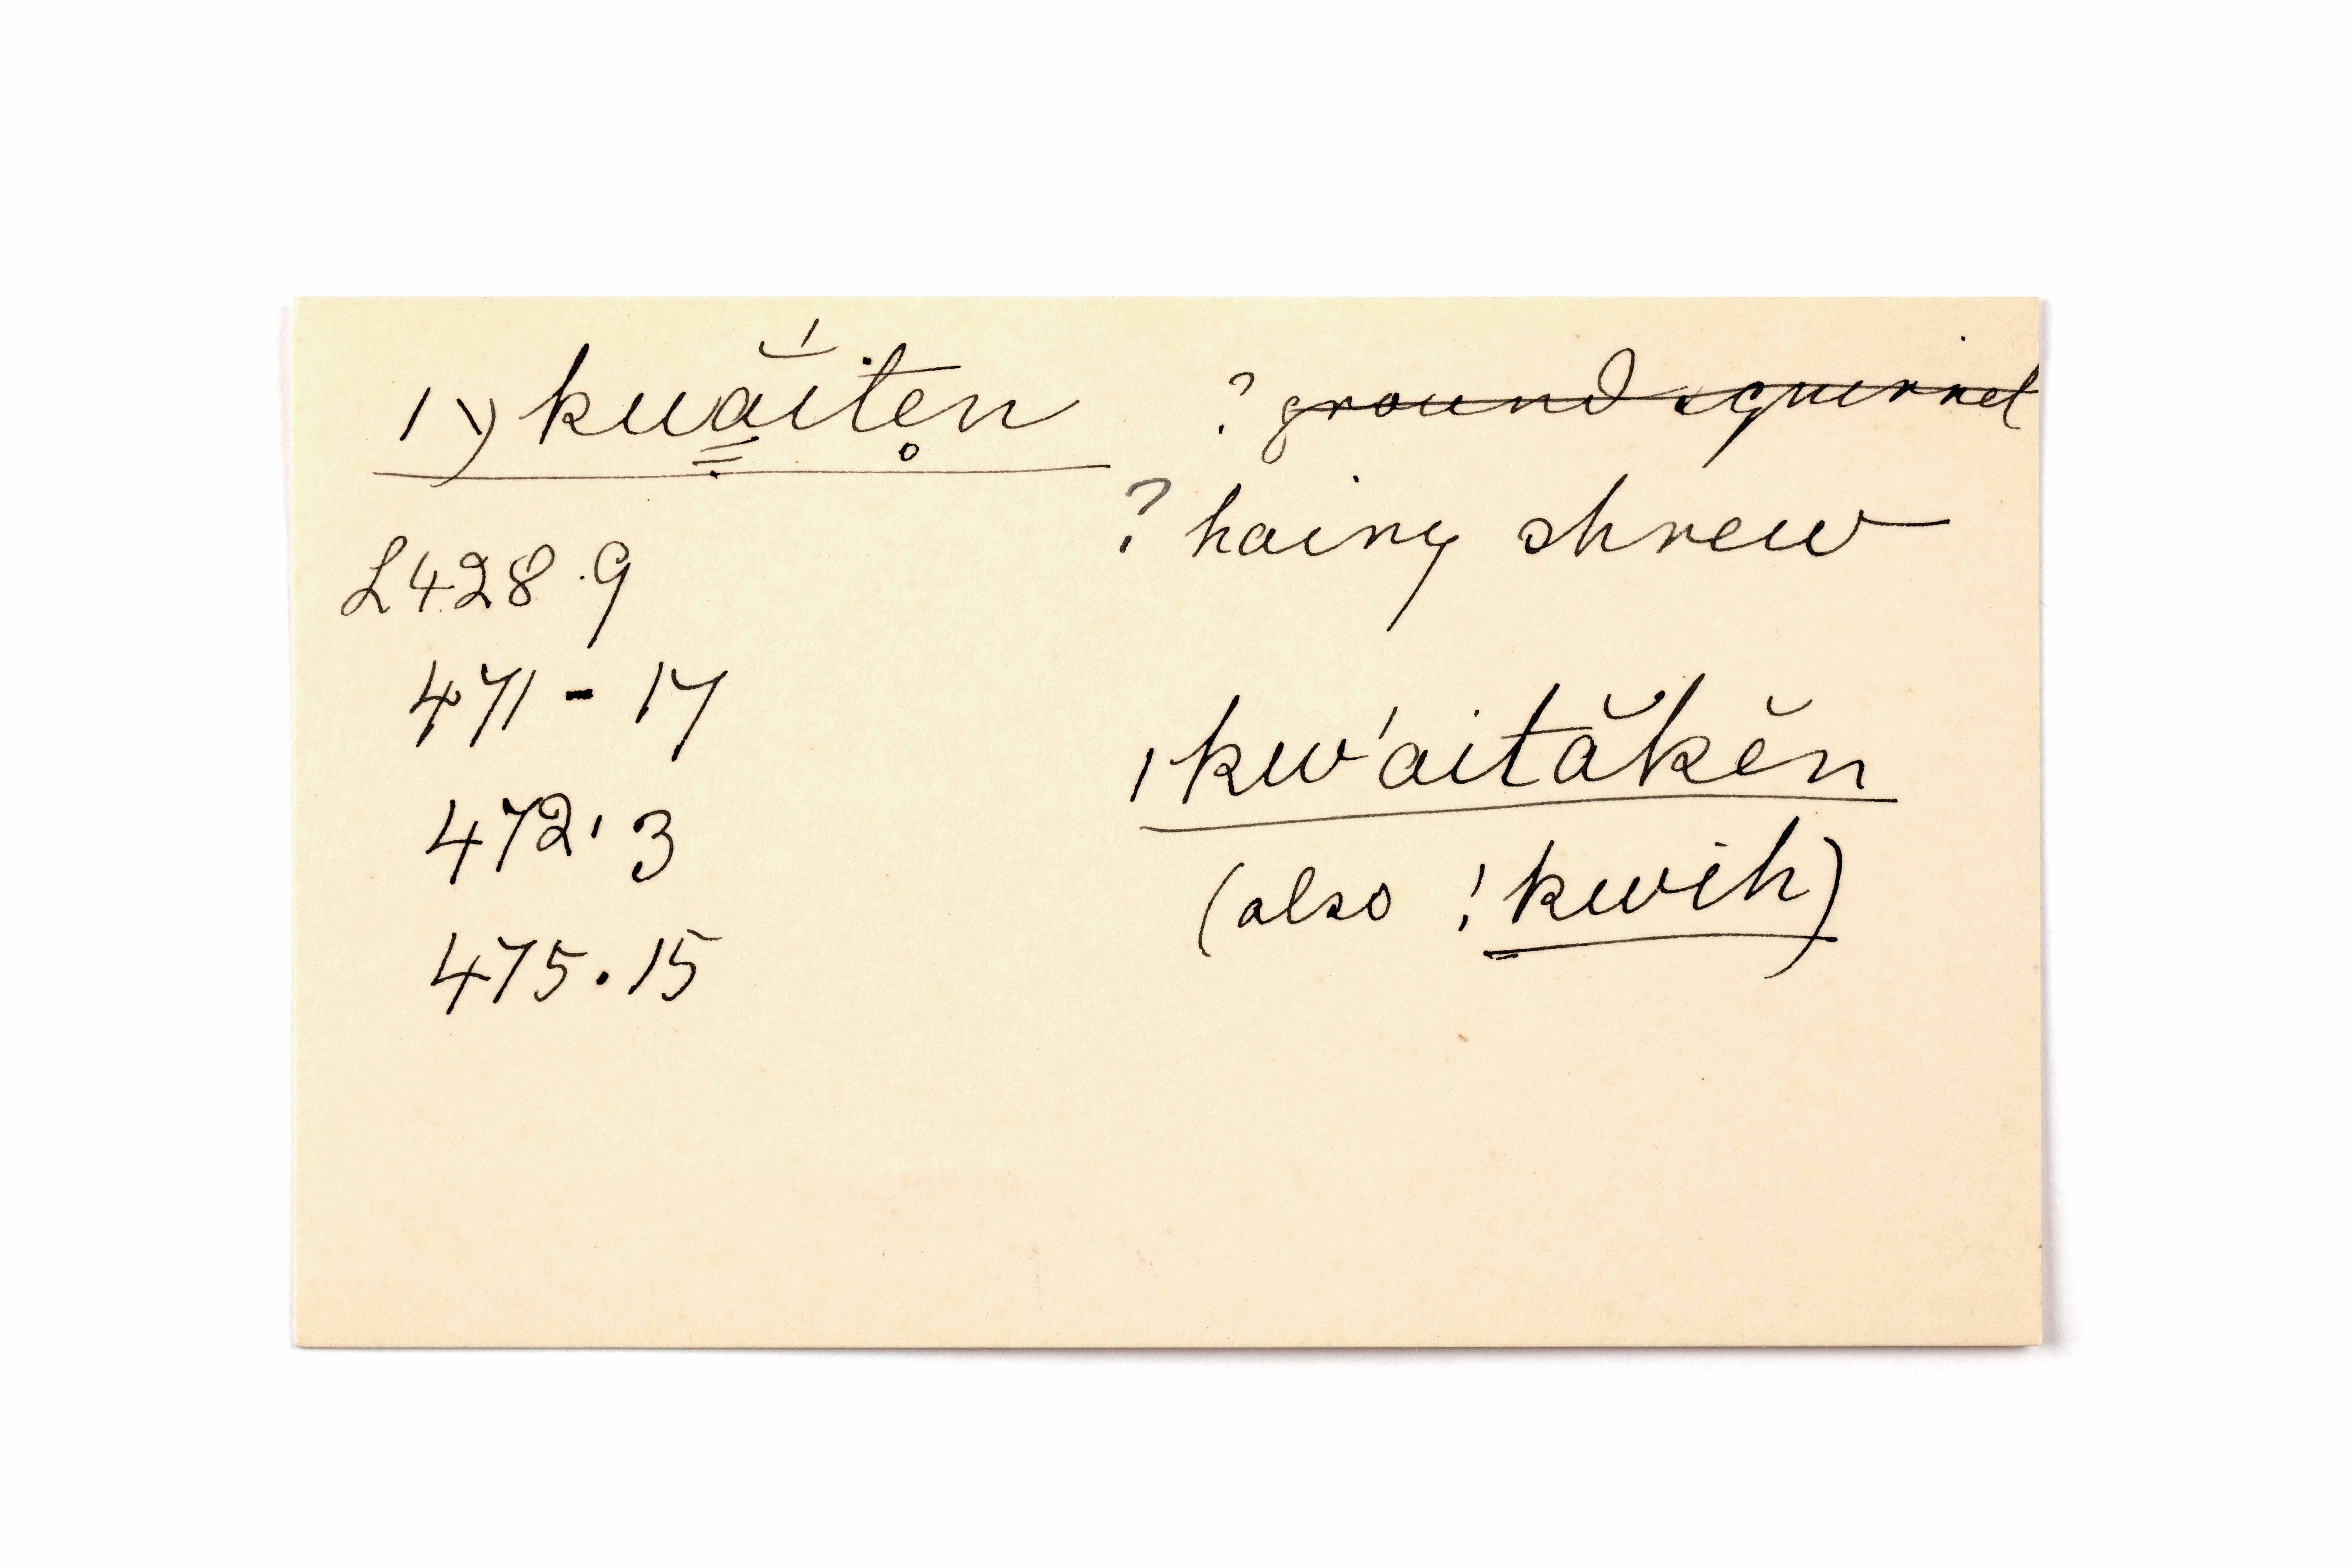 ǀγkuä́iten ? ground squirrel
? hairy shrew
L 428.9
471 - 17
472' 3
475.15
ǀkw'aităkĕn
(also !kwih)